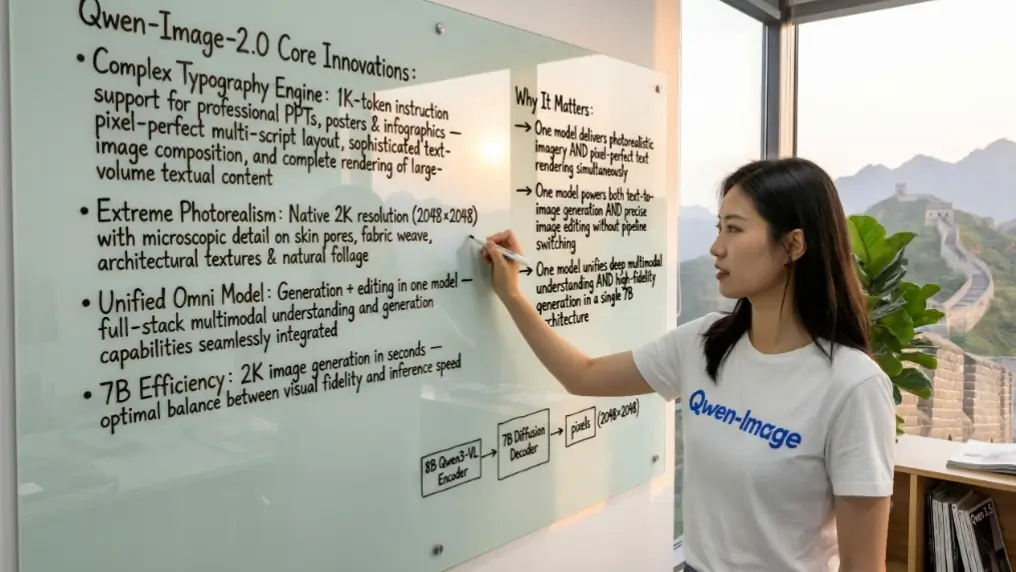 Qwen-Image-2.0 Core Innovations:
• Complex Typography Engine: 1K-token instruction
support for professional PPTs, posters & infographics —
pixel-perfect multi-script layout, sophisticated text-
image composition, and complete rendering of large-
volume textual content
• Extreme Photorealism: Native 2K resolution (2048×2048)
with microscopic detail on skin pores, fabric weave,
architectural textures & natural foliage
• Unified Omni Model: Generation + editing in one model —
full-stack multimodal understanding and generation
capabilities seamlessly integrated
• 7B Efficiency: 2K image generation in seconds —
optimal balance between visual fidelity and inference speed
Why It Matters:
→ One model delivers photorealistic
imagery AND pixel-perfect text
rendering simultaneously
→ One model powers both text-to-
image generation AND precise
image editing without pipeline
switching
→ One model unifies deep multimodal
understanding AND high-fidelity
generation in a single 7B
rchitecture
8B Qwen3-VL
Encoder
7B Diffusion
Decoder
pixels
(2048×2048)
Qwen-Image
Qwen 1.5